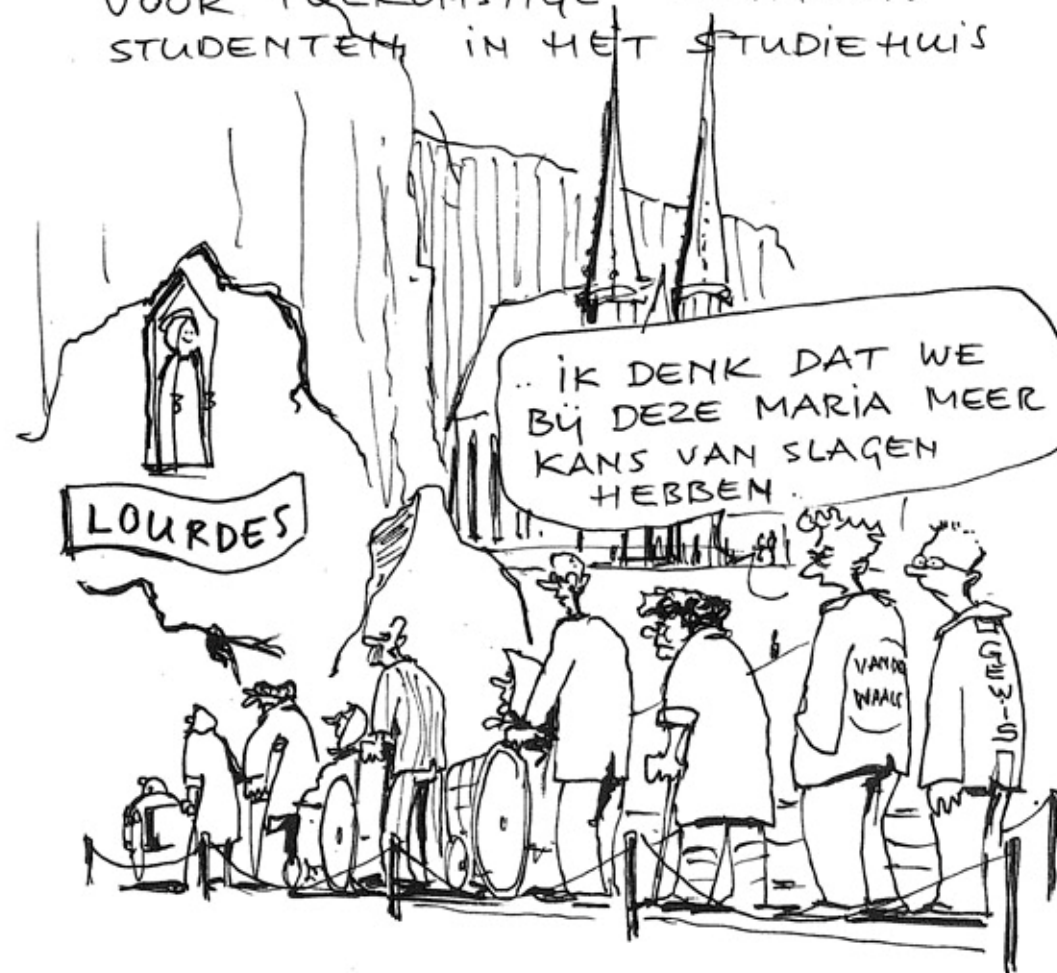 VOOR
STUDENTEN IN HET STUDIEHUIS
.. IK DENK DAT WE
BIJ DEZE MARIA MEER
KANS VAN SLAGEN
HEBBEN ..
LOURDES
VAN DER
WAALS
GEWIS